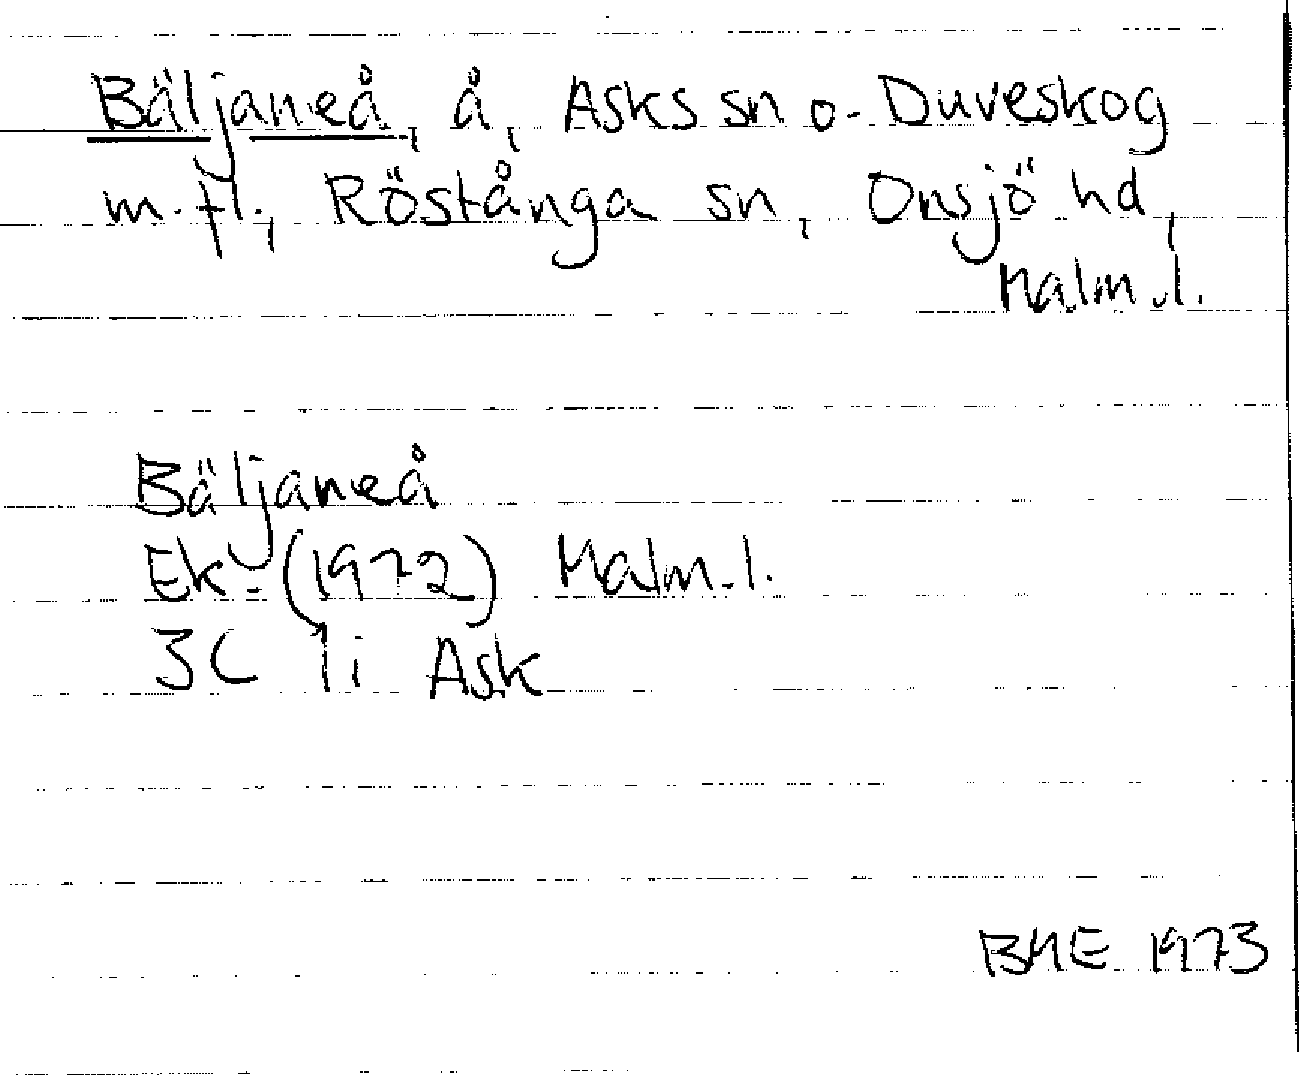 Bäljaneå, å, Asks sn o. Duveskog
m.fl., Röstånga sn, Onsjö hd,
Malm.l.
Bäljaneå
Ek. (1972) Malm.l.
3C 1i Ask
BHE 1973